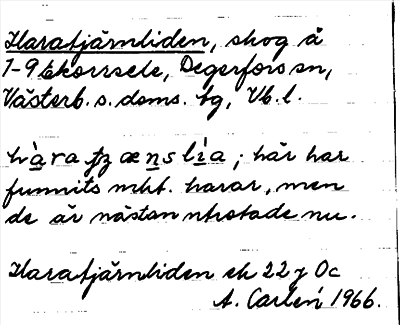 Haratjärnliden, skog å
1-9 Ekorrsele, Degerfors sn,
Västerb. s. doms. hg, Vb. l.
hàra ȶȥænslìa; här har
funnits mkt. harar, men
de är nästan utrotade nu.
Haratjärnliden ek 22 J 0c
A. Carlén 1966.